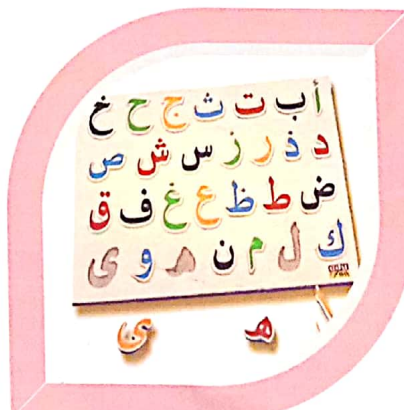 أ ب ت ث ج ح خ
د ذ ر ز س ش ص
ض ط ظ ع غ ف ق
ك ل م ن ه و ى
ه ى